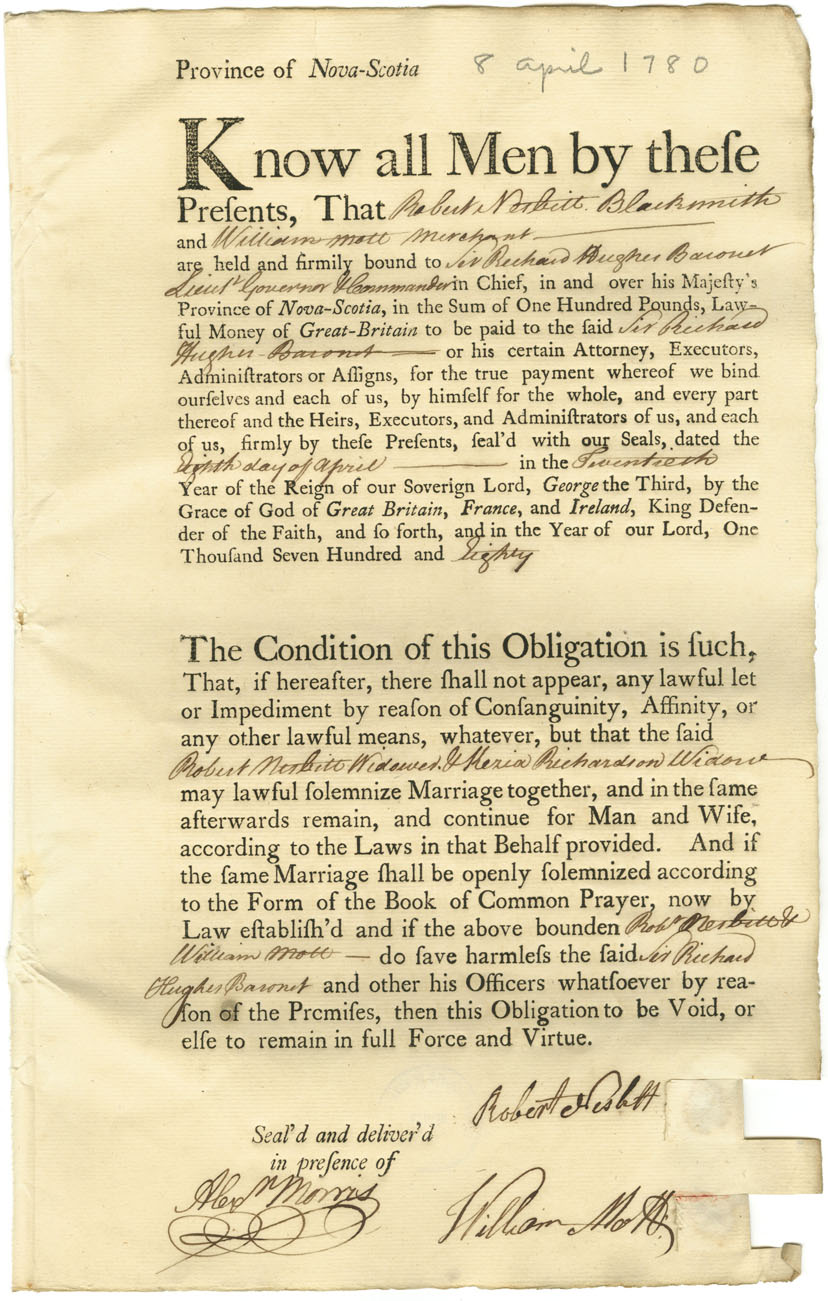 Province of Nova-Scotia 8 april 1780
Know all Men by theſe
Preſents, That Robert Nesbitt Blacksmith
and William Mott Merchant
are held and firmily bound to Sir Richard Hughes Baronet
Lieut Governor & Commander in Chief, in and over his Majeſty's
Province of Nova-Scotia, in the Sum of One Hundred Pounds, Law-
ful Money of Great-Britain to be paid to the ſaid Sir Richard
Hughes Baronet or his certain Attorney, Executors,
Adminiſtrators or Aſſigns, for the true payment whereof we bind
ourſelves and each of us, by himſelf for the whole, and every part
thereof and the Heirs, Executors, and Adminiſtrators of us, and each
of us, firmly by theſe Preſents, ſeal'd with our Seals, dated the
Eighth day of April in the Twentieth
Year of the Reign of our Soverign Lord, George the Third, by the
Grace of God of Great Britain, France, and Ireland, King Defen-
der of the Faith, and ſo forth, and in the Year of our Lord, One
Thouſand Seven Hundred and Eighty
The Condition of this Obligation is ſuch,
That, if hereafter, there ſhall not appear, any lawful let
or Impediment by reaſon of Conſanguinity, Affinity, or
any other lawful means, whatever, but that the ſaid
Robert Nesbitt Widower & Keria Richardson Widow
may lawful ſolemnize Marriage together, and in the ſame
afterwards remain, and continue for Man and Wife,
according to the Laws in that Behalf provided. And if
the ſame Marriage ſhall be openly ſolemnized according
to the Form of the Book of Common Prayer, now by
Law eſtabliſh'd and if the above bounden Robt Nesbitt &
William Mott — do ſave harmleſs the ſaid Sir Richard
Hughes Baronet and other his Officers whatſoever by rea-
ſon of the Premiſes, then this Obligation to be Void, or
elſe to remain in full Force and Virtue.
Robert Nesbitt
Seal'd and deliver'd
in preſence of
Alexr Morris
William Mott